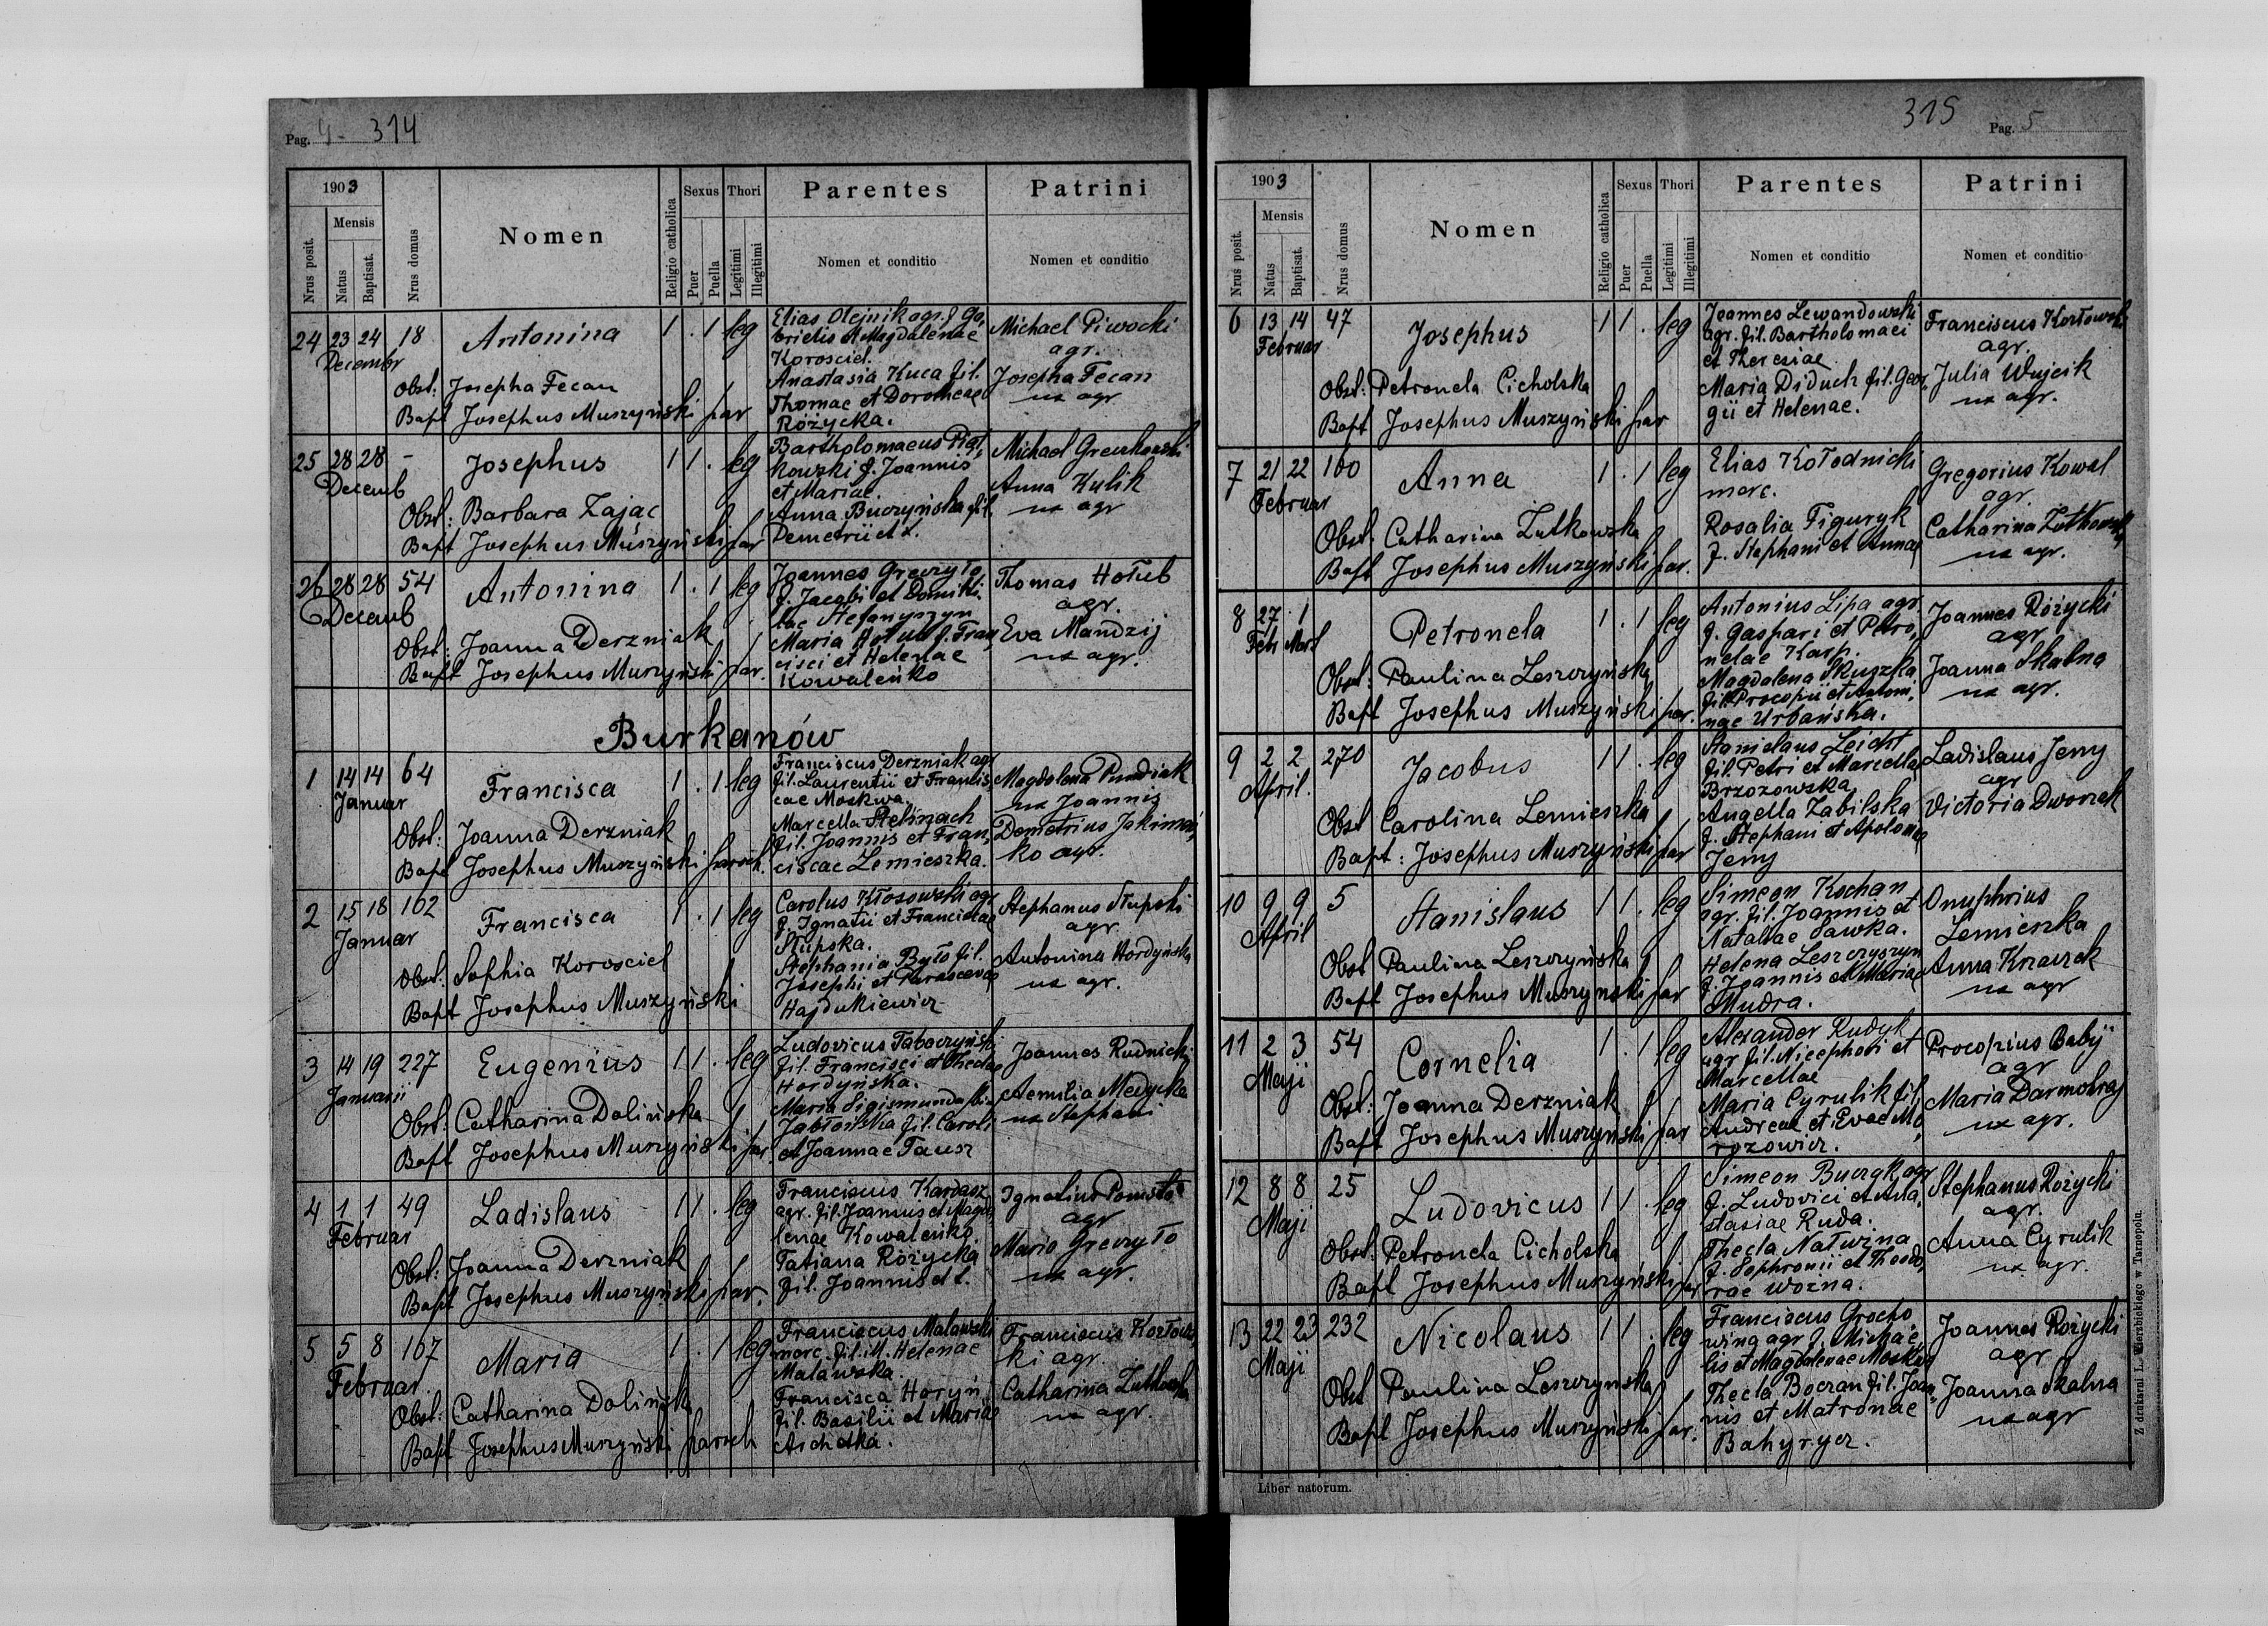 Pag. 4- 314
1903
Nrus posit.
Mensis
Natus
Baptisat.
Nrus domus
Nomen
Religio catholica
Sexus
Puer
Puella
Thori
Legitimi
Illegitimi
Parentes
Nomen et conditio
Patrini
Nomen et conditio
24 23 24 18 Antonina 1 . 1 leg
Decembr
Obst: Josepha Fecan
Bapt Josephus Muszyński par
Elias Olejnik agr. f. Ga
brielis et Magdalenae
Korosciel.
Anastasia Kuca fil.
Thomae et Dorotheae
Różycka.
Michael Piwocki
agr.
Josepha Fecan
ux agr
25 28 28 - Josephus 1 1 . leg
Decemb
Obst: Barbara Zając
Bapt Josephus Muszyński par
Bartholomaeus Piąt
kowski f. Joannis
et Mariae.
Anna Buczyńska fil.
Demetrii et
Michael
Anna Kulik
ux agr
26 28 28 54 Antonina 1 . 1 leg
Decemb
Obst: Joanna Derzniak
Bapt Josephus Muszyński par.
Joannes Greczyło
f. Jacobi et Domiki
lae Stefanyszyn
Maria f. Fran
cisci et Helenae
Kowaleńko
Thomas Hołub
agr.
Eva Mandzij
ux agr.
Burkanów
1 14 14 64 Francisca 1 . 1 leg
Januar
Obst: Joanna Derzniak
Bapt Josephus Muszyński paroch.
Franciscus Derzniak agr
fil. Laurentii et Francis
cae Moskwa.
Marcella Stelmach
fil. Joannis et Fran
ciscae Lemieszka.
Magdalena Pundiak
ux Joannis
Demetrius Jakimeć
ko agr.
2 15 18 162 Francisca 1 . 1 leg
Januar
Obst: Sophia Korosciel
Bapt Josephus Muszyński
Carolus Kłosowski agr
f. Ignatii et Franciscae
Słupska.
Stephania Było fil.
Josephi et Parascevae
Hajdukiewicz
Stephanus Słupski
agr.
Antonina Hordyńska
ux agr.
3 14 19 227 Eugenius 1 1 . leg
Januarii
Obst: Catharina Dolińska
Bapt Josephus Muszyński par.
Ludovicus Tabaczyński
fil. Francisci et Theclae
Hordyńska.
Maria Sigismunda
Jabłońska fil. Caroli
et Joannae Fausz
Joannes Rudnicki
Aemilia Medycka
ux Stephani
4 1 1 49 Ladislaus 1 1 . leg
Februar
Obst: Joanna Derzniak
Bapt Josephus Muszyński par.
Franciscus Kardasz
agr. fil. Joannis et Magda
lenae Kowaleńko.
Tatiana Różycka
fil. Joannis et
Ignatius
agr
Maria Greczyło
ux agr.
5 5 8 167 Maria 1 . 1 leg
Februar
Obst: Catharina Dolińska
Bapt Josephus Muszyński paroch
Franciscus Malawski
merc. fil. M. Helenae
Malawska.
Francisca Haryń
fil. Basilii et Mariae
Franciscus Kozłows
ki agr.
Catharina Zutkowska
ux agr.
315 Pag. 5
1903
Nrus posit.
Mensis
Natus
Baptisat.
Nrus domus
Nomen
Religio catholica
Sexus
Puer
Puella
Thori
Legitimi
Illegitimi
Parentes
Nomen et conditio
Patrini
Nomen et conditio
6 13 14 47 Josephus 1 1 . leg
Februar
Obst: Petronela Cicholska
Bapt Josephus Muszyński par
Joannes Lewandowski
agr. fil. Bartholomaei
et Theresiae
Maria Diduch fil. Geor
gii et Helenae.
Franciscus Kozłowski
agr.
Julia Wujcik
ux agr.
7 21 22 100 Anna 1 . 1 leg
Februar
Obst: Catharina Zutkowska
Bapt Josephus Muszyński par.
Elias Kołodnicki
merc.
Rosalia Figuryk
f. Stephani et Annae
Gregorius Kowal
agr.
Catharina
ux agr.
8 27 1 Petronela 1 . 1 leg
Febr Mart
Obst: Paulina Leszczyńska
Bapt Josephus Muszyński par.
Antonius Lipa agr
f. Gaspari et Petro
nelae Karp.
Magdalena Skuszka
fil. Procopii et Antoni
nae Urbańska.
Joannes Różycki
agr
Joanna Skalna
ux agr.
9 2 2 270 Jacobus 1 1 . leg
April.
Obst Carolina Lemieszka
Bapt: Josephus Muszyński par
Stanislaus Leicht
fil. Petri et Marcella
Brzozowska
Angella Zabilska
f. Stephani et Apolonia
Jerry
Ladislaus Jerry
agr
Victoria Dworzek
10 9 9 5 Stanislaus 1 1 . leg
April
Obst Paulina Leszczyńska
Bapt Josephus Muszyński par
Simeon Kochan
agr. fil. Joannis et
Nataliae Sawka.
Helena Leszczyszyn
f. Joannis et Mariae
Mudra.
Onuphrius
Lemieszka
Anna Krzaczek
ux agr
11 2 3 54 Cornelia 1 . 1 leg
Maji
Obst: Joanna Derzniak
Bapt Josephus Muszyński par
Alexander Rudyk
agr fil. Nicephori et
Marcellae
Maria Cyrulik fil
Andreae et Evae Mo
rozowicz.
Procopius Babij
agr
Maria Darmohraj
ux agr.
12 8 8 25 Ludovicus 1 1 . leg
Maji
Obst: Petronela Cicholska
Bapt Josephus Muszyński par
Simeon Buczak agr
f. Ludovici et Ana
stasiae Ruda.
Thecla Natwina
f. Sophronii et Theodo
rae Wozna.
Stephanus Różycki
agr.
Anna Cyrulik
ux agr.
13 22 23 232 Nicolaus 1 1 . leg
Maji
Obst Paulina Leszczyńska
Bapt Josephus Muszyński par.
Franciscus Grocho
wina agr f. Michae
lis et Magdalenae Moskwa
Thecla Boczan fil. Joan
nis et Matronae
Bahyrycz.
Joannes Różycki
agr
Joanna Skalna
ux agr
Liber natorum.
Z drukarni L. Wierzbickiego w Tarnopolu.